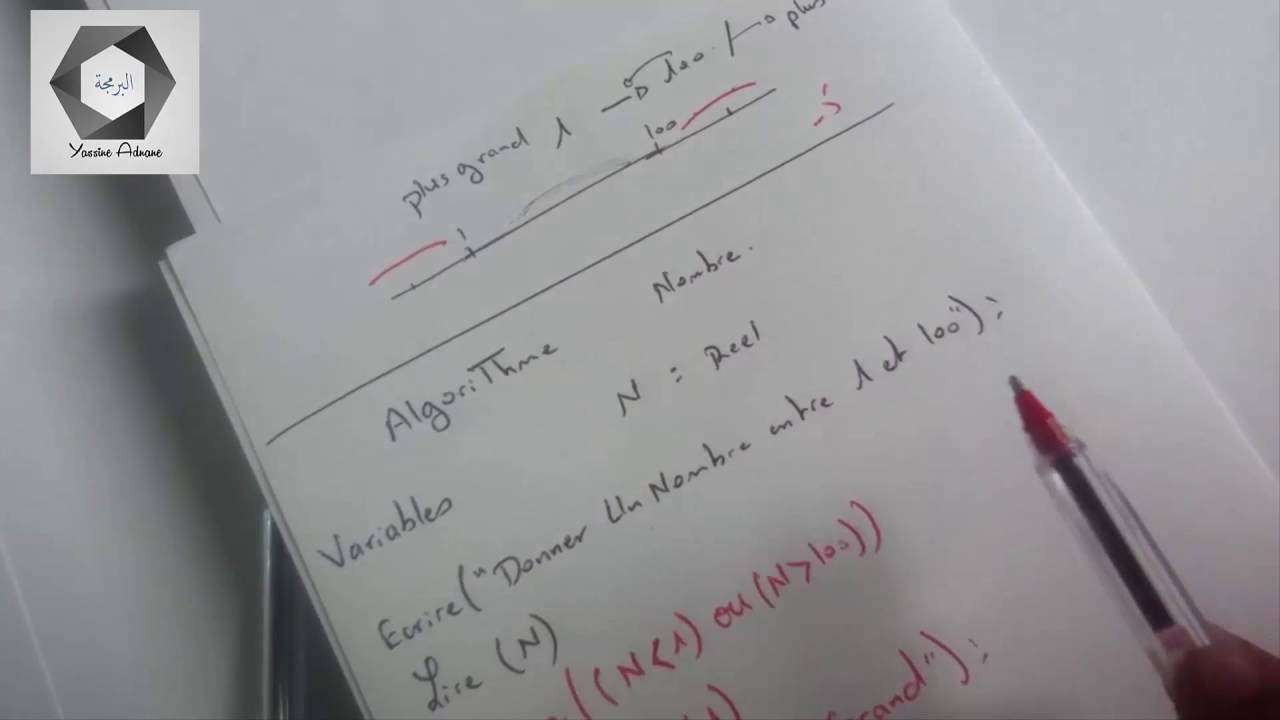 البرمجة
Yassine Adnane
plus grand 1 → 100 → plus
1 100
Algorithme Nombre.
Variables N : Reel
Ecrire("Donner Un Nombre entre 1 et 100");
Lire (N)
((N<1) ou (N>100))
grand");